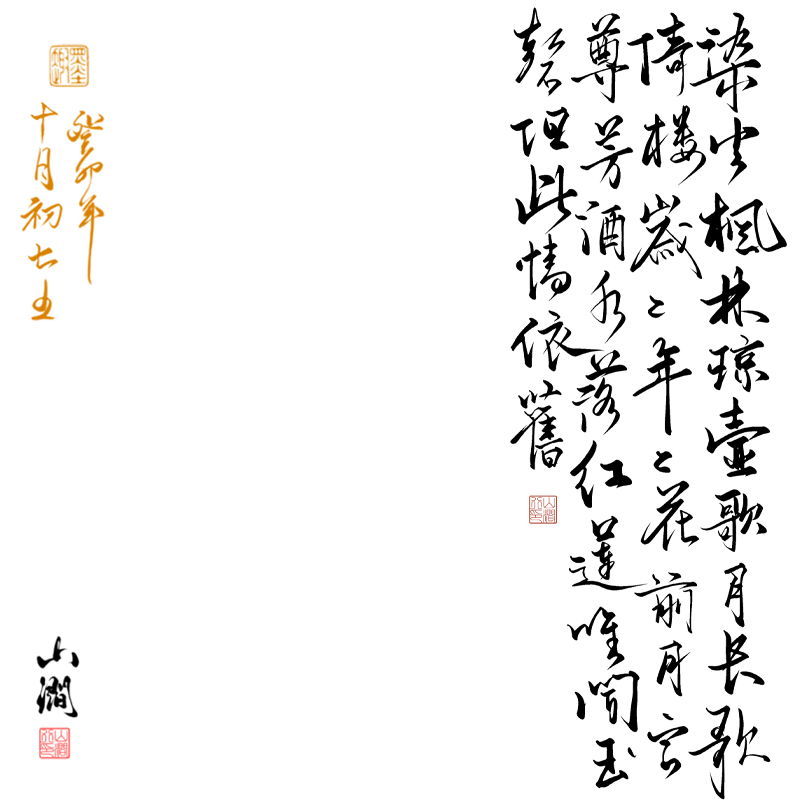 染枫林琼壶歌月长歌
倚楼歲〻年〻花前月
尊芳酒水落红莲唯闻玉
磬但此情依舊
癸卯年
十月初七
山澗